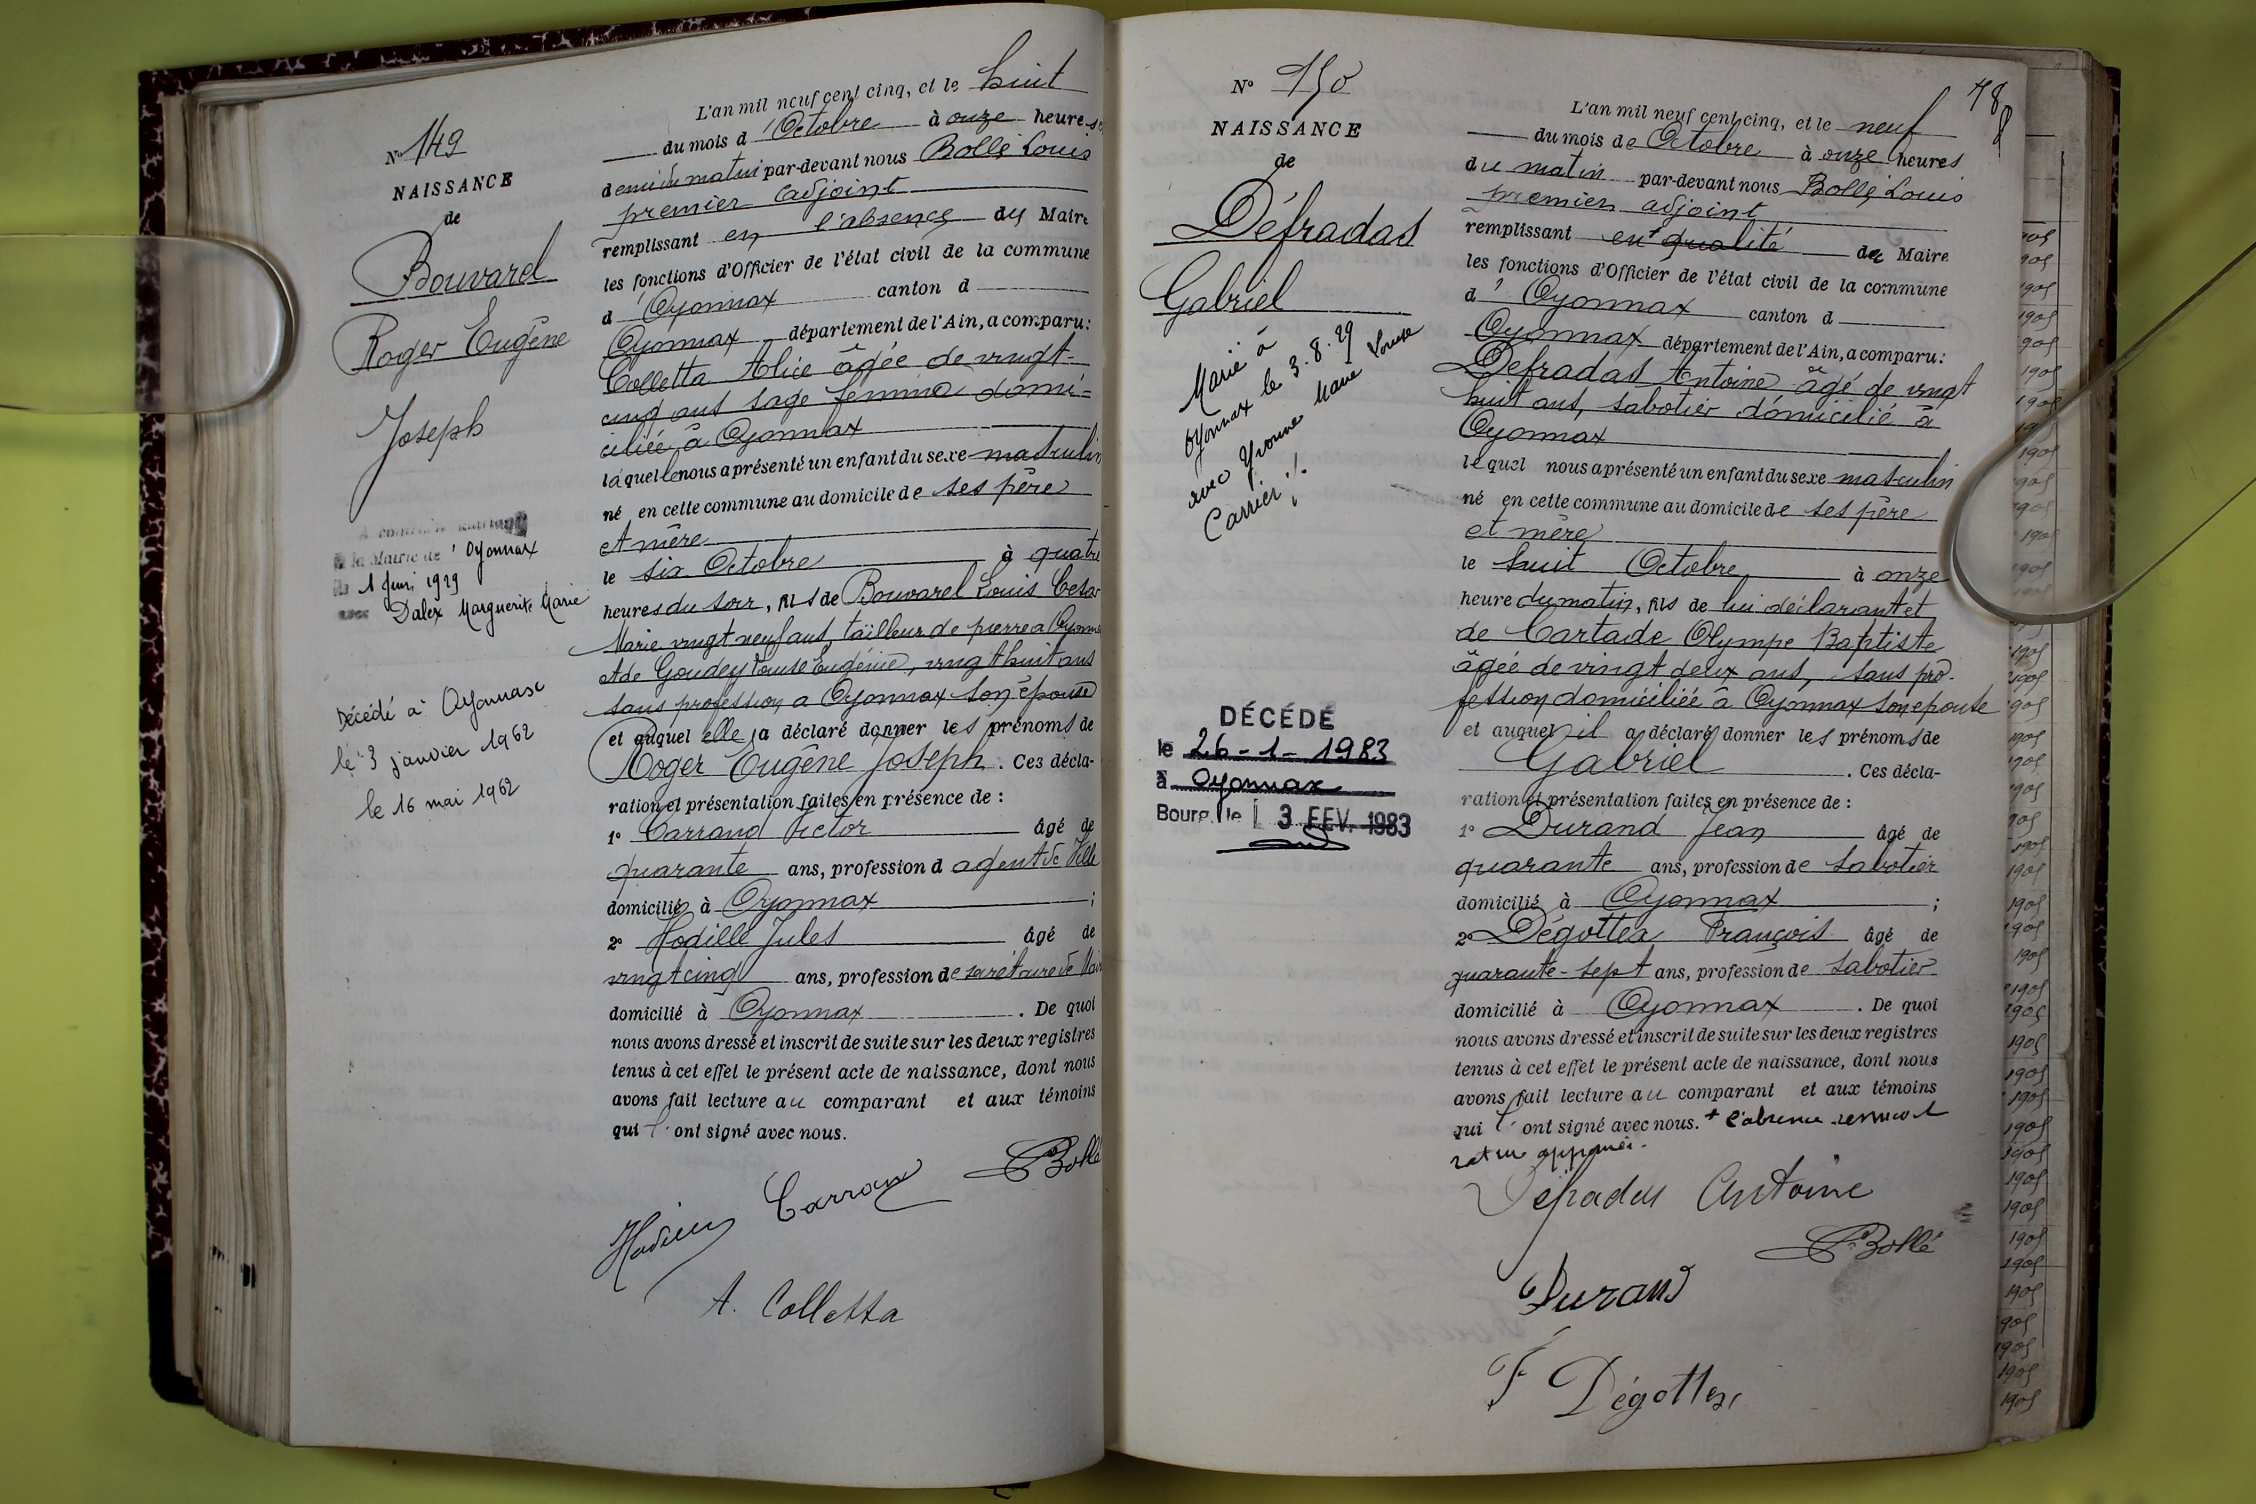 N° 149
NAISSANCE
de
Bouvard
Roger Eugène
Joseph
à la Mairie de Oyonnax
1 Juin 1929
avec Dalex Marguerite Marie
Décédé à Oyonnax
le 3 janvier 1962
le 16 mai 1962
L'an mil neuf cent cinq, et le huit
du mois d'Octobre à onze heures
demi du matin par-devant nous Bollé Louis
premier adjoint
remplissant en l'absence du Maire
les fonctions d'Officier de l'état civil de la commune
d'Oyonnax canton d
Oyonnax département de l'Ain, a comparu:
Colletta Alice âgée de vingt-
cinq ans sage femme domi-
ciliée à Oyonnax
laquelle nous a présenté un enfant du sexe masculin
né en cette commune au domicile de ses père
et mère
le six Octobre à quatre
heures du soir, fils de Bouvard Louis César
Marie vingt neuf ans, tailleur de pierre a Oyonnax
et de Goudey Louise Eugénie, vingt huit ans
sans profession a Oyonnax son épouse
et auquel elle a déclaré donner les prénoms de
Roger Eugène Joseph. Ces décla-
ration et présentation faites en présence de :
1° Carrand Victor âgé de
quarante ans, profession d agent de Ville
domicilié à Oyonnax ;
2° Hodille Jules âgé de
vingt cinq ans, profession de secrétaire de Mair
domicilié à Oyonnax . De quoi
nous avons dressé et inscrit de suite sur les deux registres
tenus à cet effet le présent acte de naissance, dont nous
avons fait lecture au comparant et aux témoins
qui ont signé avec nous.
Bollé
Carrand
Hodille
A. Colletta
78
N° 150
NAISSANCE
de
Défradas
Gabriel
Marié à
Oyonnax le 3.8.29
avec Yvonne Marie Louise
Carrier
DÉCÉDÉ
le 26-1-1983
à Oyonnax
Bourg, le 3 FEV. 1983
L'an mil neuf cent cinq, et le neuf
du mois de Octobre à onze heures
du matin par-devant nous Bollé Louis
premier adjoint
remplissant en + qualité de Maire
les fonctions d'Officier de l'état civil de la commune
d' Oyonnax canton d
Oyonnax département de l'Ain, a comparu:
Defradas Antoine âgé de vingt
huit ans, sabotier domicilié à
Oyonnax
lequel nous a présenté un enfant du sexe masculin
né en cette commune au domicile de ses père
et mère
le huit Octobre à onze
heure du matin, fils de lui déclarant et
de Cartade Olympe Baptiste
âgée de vingt deux ans, sans pro-
fession domiciliée à Oyonnax son epouse
et auquel il a déclaré donner les prénoms de
Gabriel . Ces décla-
ration et présentation faites en présence de :
1° Durand Jean âgé de
quarante ans, profession de sabotier
domicilié à Oyonnax ;
2° Dégottex François âgé de
quarante-sept ans, profession de sabotier
domicilié à Oyonnax . De quoi
nous avons dressé et inscrit de suite sur les deux registres
tenus à cet effet le présent acte de naissance, dont nous
avons fait lecture au comparant et aux témoins
qui ont signé avec nous. + l'absence
Antoine
Bollé
Durand
F Dégottex